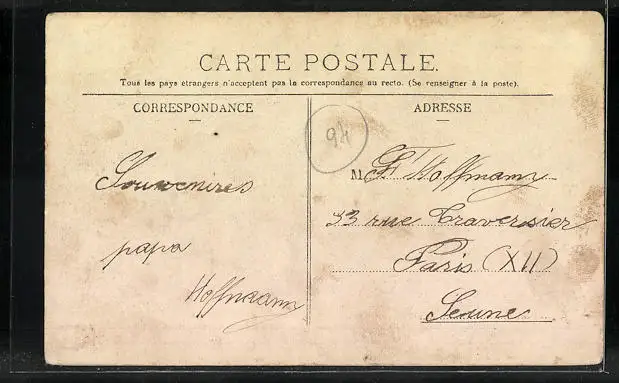 CARTE POSTALE.
Tous les pays étrangers n'acceptent pas la correspondance au recto. (Se renseigner à la poste).
CORRESPONDANCE
ADRESSE
94
Souvenires
papa
Hoffmann
M F Hoffmann
33 rue Traversier
Paris (XII)
Seune